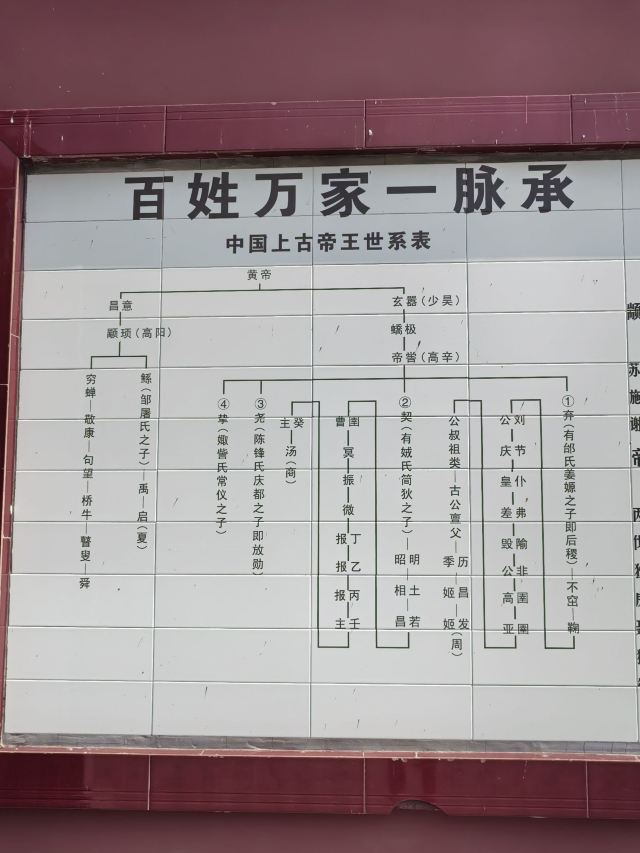 百姓万家一脉承
中国上古帝王世系表
黄帝
昌意
玄嚣(少昊)
颛顼(高阳)
蟜极
帝喾(高辛)
穷蝉—敬康—句望—桥牛—瞽叟—舜
鲧(邹屠氏之子)—禹—启(夏)
④挚(娵訾氏常仪之子)
③尧(陈锋氏庆都之子即放勋)
②契(有娀氏简狄之子)
昭明
相土
昌若
曹圉
冥
振
微
报丁
报乙
报丙
主壬
主癸
汤(商)
①弃(有邰氏姜嫄之子即后稷)—不窋—鞠
公刘
庆节
皇仆
差弗
毁隃
公非
高圉
亚圉
公叔祖类—古公亶父
季历
姬昌
姬发(周)
颛
苏
施
谢
帝